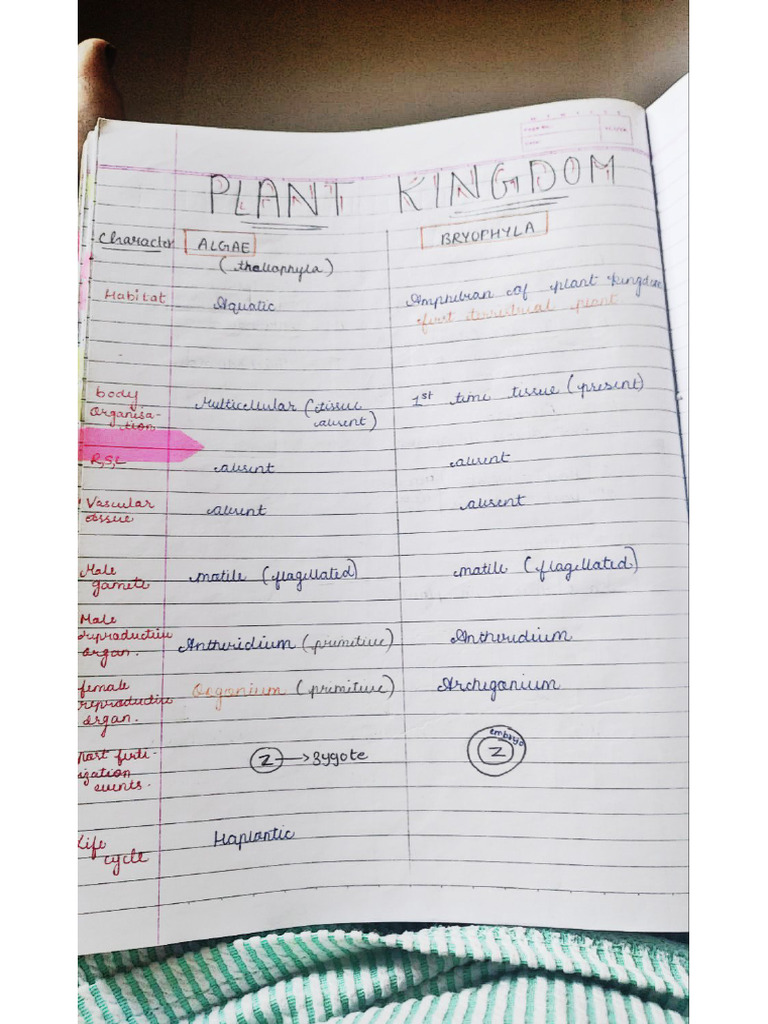 PLANT KINGDOM
Character ALGAE BRYOPHYLA
(thallophyla)
Habitat Aquatic Amphibian of plant kingdom
first terrestrial plant
body
Organisa-
tion
Multicellular (tissue
absent)
1st time tissue (present)
R,S,L absent absent
Vascular
tissue
absent absent
Male
gamete
motile (flagillated) motile (flagillated)
Male
reproductive
organ.
Antheridium (primitive) Antheridium
female
reproductive
organ.
Oogonium (primitive) Archegonium
Post ferti-
lization
events.
Z → zygote
embryo
Z
Life
cycle
Haplontic